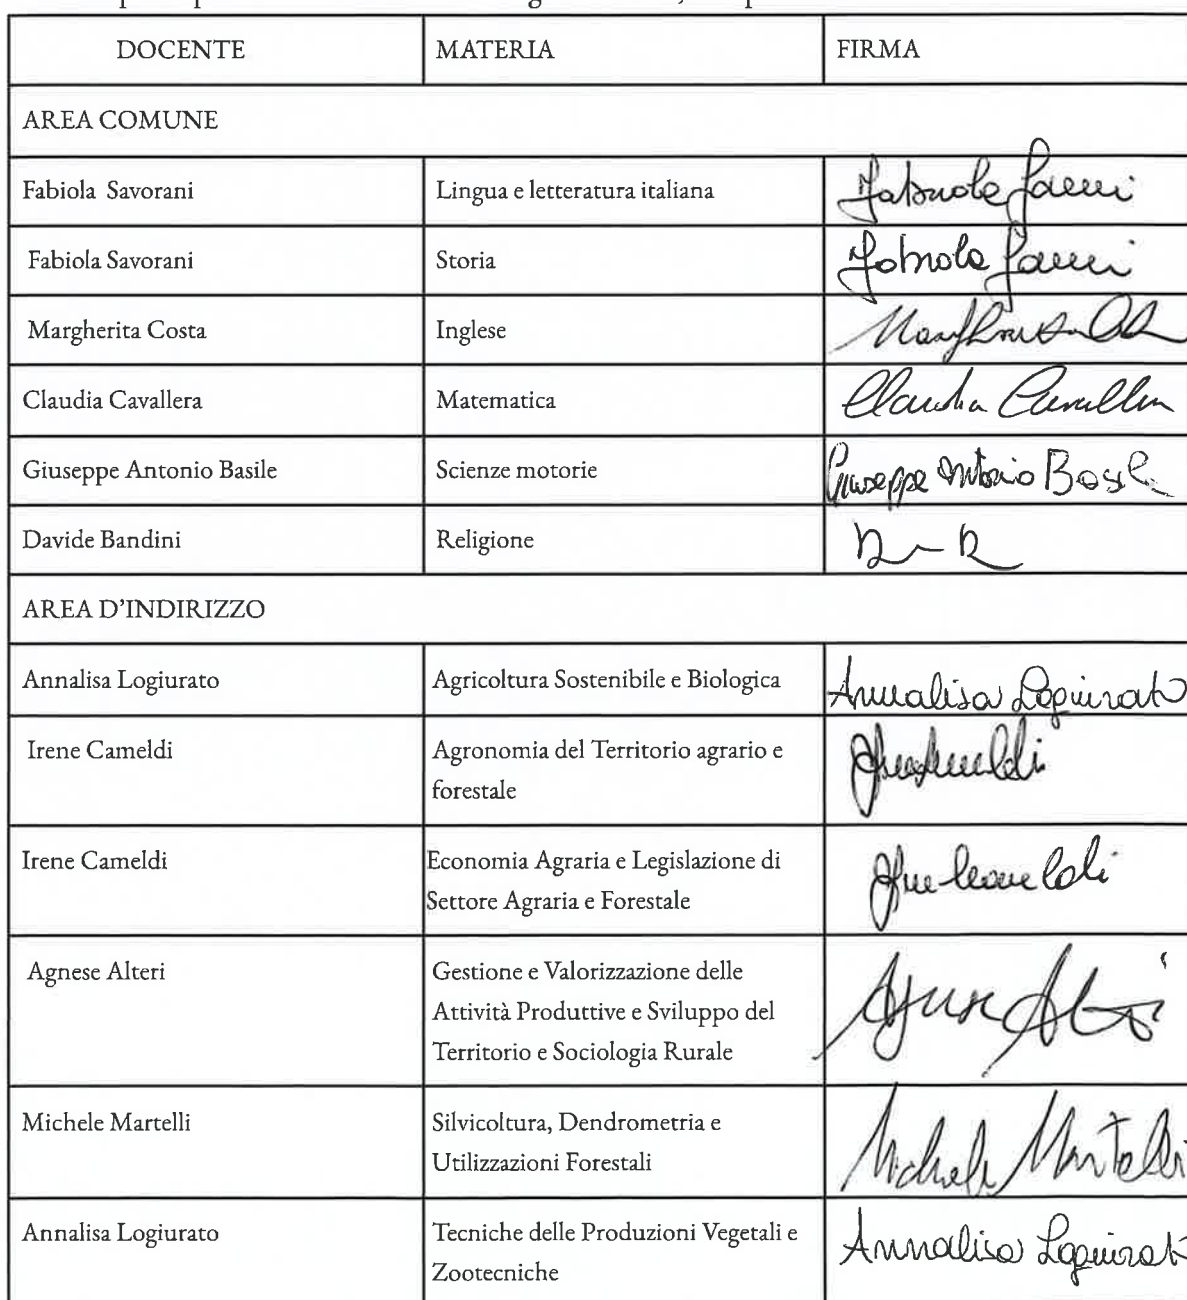 DOCENTE MATERIA FIRMA
AREA COMUNE
Fabiola Savorani Lingua e letteratura italiana
Fabiola Savorani Storia
Margherita Costa Inglese
Claudia Cavallera Matematica Claudia Cavallera
Giuseppe Antonio Basile Scienze motorie Giuseppe Antonio Basile
Davide Bandini Religione
AREA D'INDIRIZZO
Annalisa Logiurato Agricoltura Sostenibile e Biologica Annalisa Logiurato
Irene Cameldi Agronomia del Territorio agrario e
forestale
Irene Cameldi Economia Agraria e Legislazione di
Settore Agraria e Forestale
Agnese Alteri Gestione e Valorizzazione delle
Attività Produttive e Sviluppo del
Territorio e Sociologia Rurale
Michele Martelli Silvicoltura, Dendrometria e
Utilizzazioni Forestali Michele Martelli
Annalisa Logiurato Tecniche delle Produzioni Vegetali e Annalisa Logiurat
Zootecniche